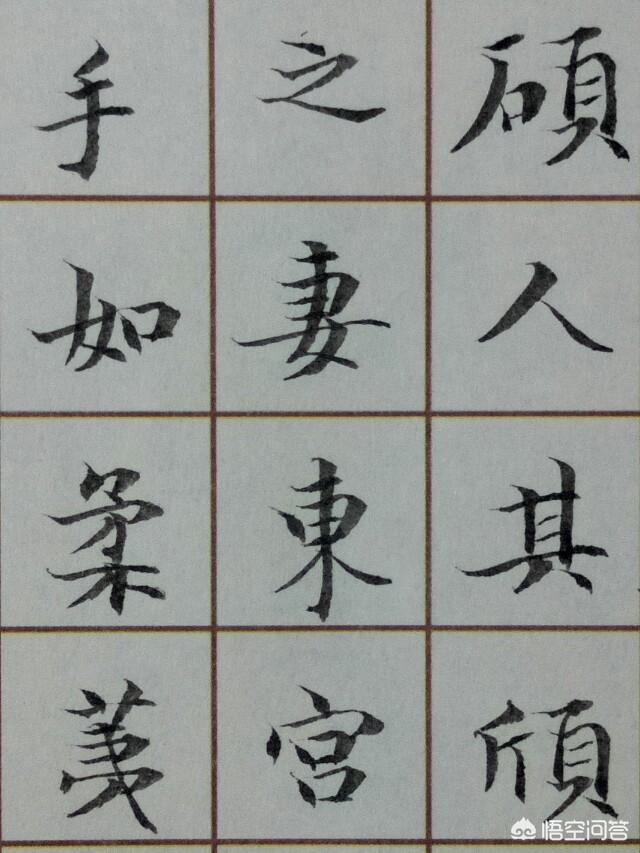 碩人其頎
之妻東宮
手如柔荑
悟空问答